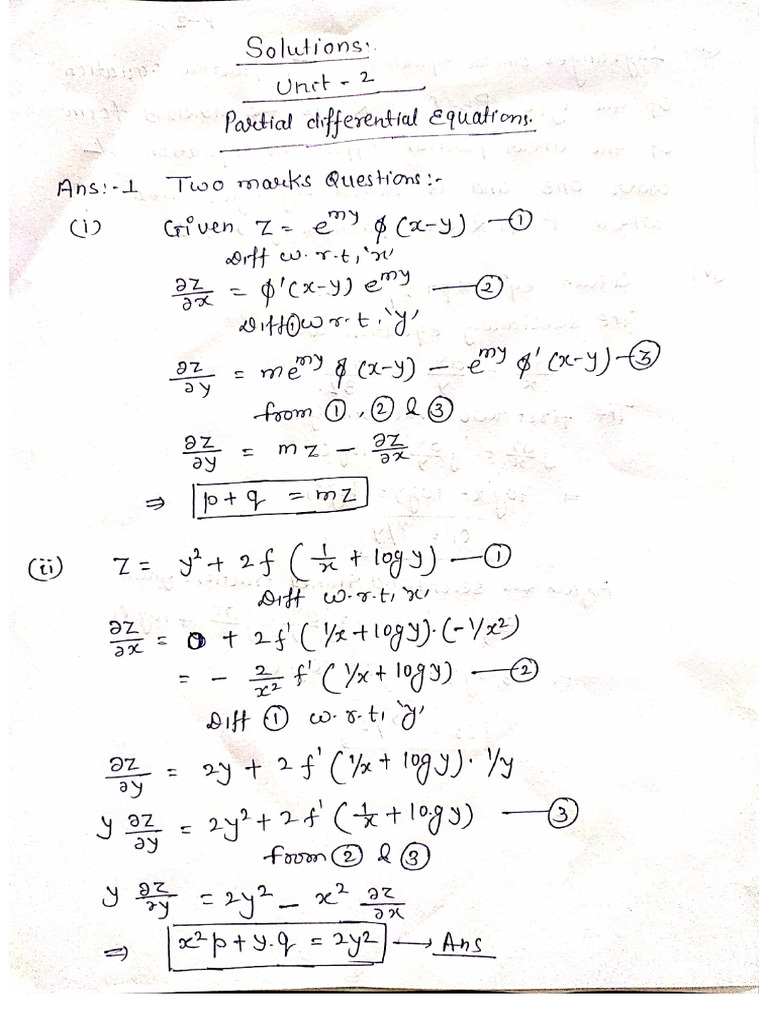 Solutions:
Unit - 2
Partial differential Equations.
Ans:-1 Two marks Questions:-
(i) Given Z = e^{my} ϕ(x-y) —①
Diff w.r.t, 'x'
∂z/∂x = ϕ'(x-y) e^{my} —②
Diff① w r.t, 'y'
∂z/∂y = me^{my} ϕ(x-y) - e^{my} ϕ'(x-y) —③
from ①, ② & ③
∂z/∂y = mz - ∂z/∂x
⇒ p+q = mz
(ii) Z = y² + 2f (1/x + log y) —①
Diff w.r.t, 'x'
∂z/∂x = 0 + 2f'(1/x + log y)·(-1/x²)
= - 2/x² f'(1/x + log y) —②
Diff ① w.r.t, 'y'
∂z/∂y = 2y + 2f'(1/x + log y)· 1/y
y ∂z/∂y = 2y² + 2f'(1/x + log y) —③
from ② & ③
y ∂z/∂y = 2y² - x² ∂z/∂x
⇒ x²p + y.q = 2y² → Ans